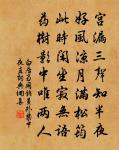 宮漏三聲知半夜
好風涼月滿松筠
此時閑坐寂無語
藥樹影中唯兩人
白居易同錢員外禁中
夜直